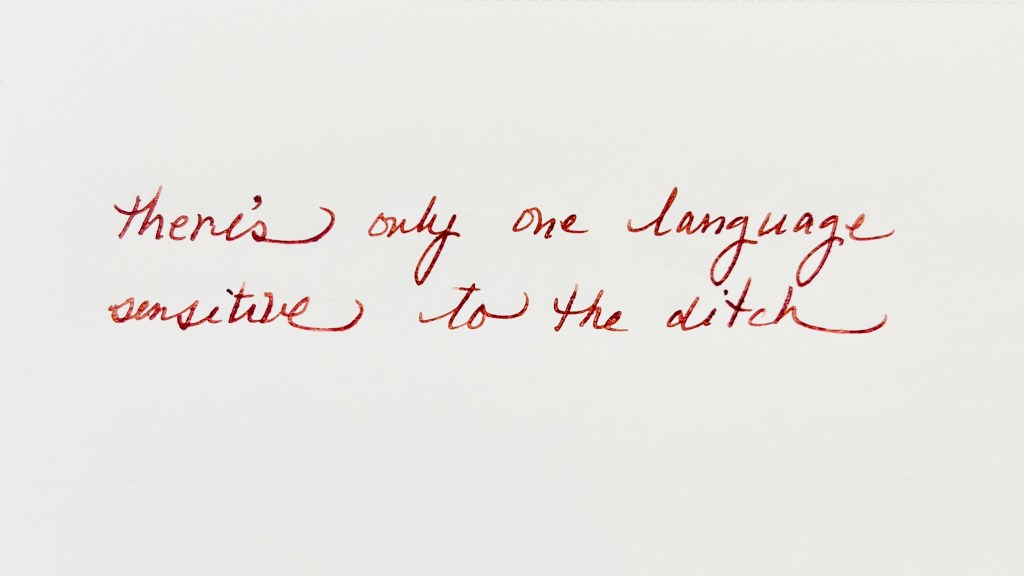 there's only one language
sensitive to the ditch